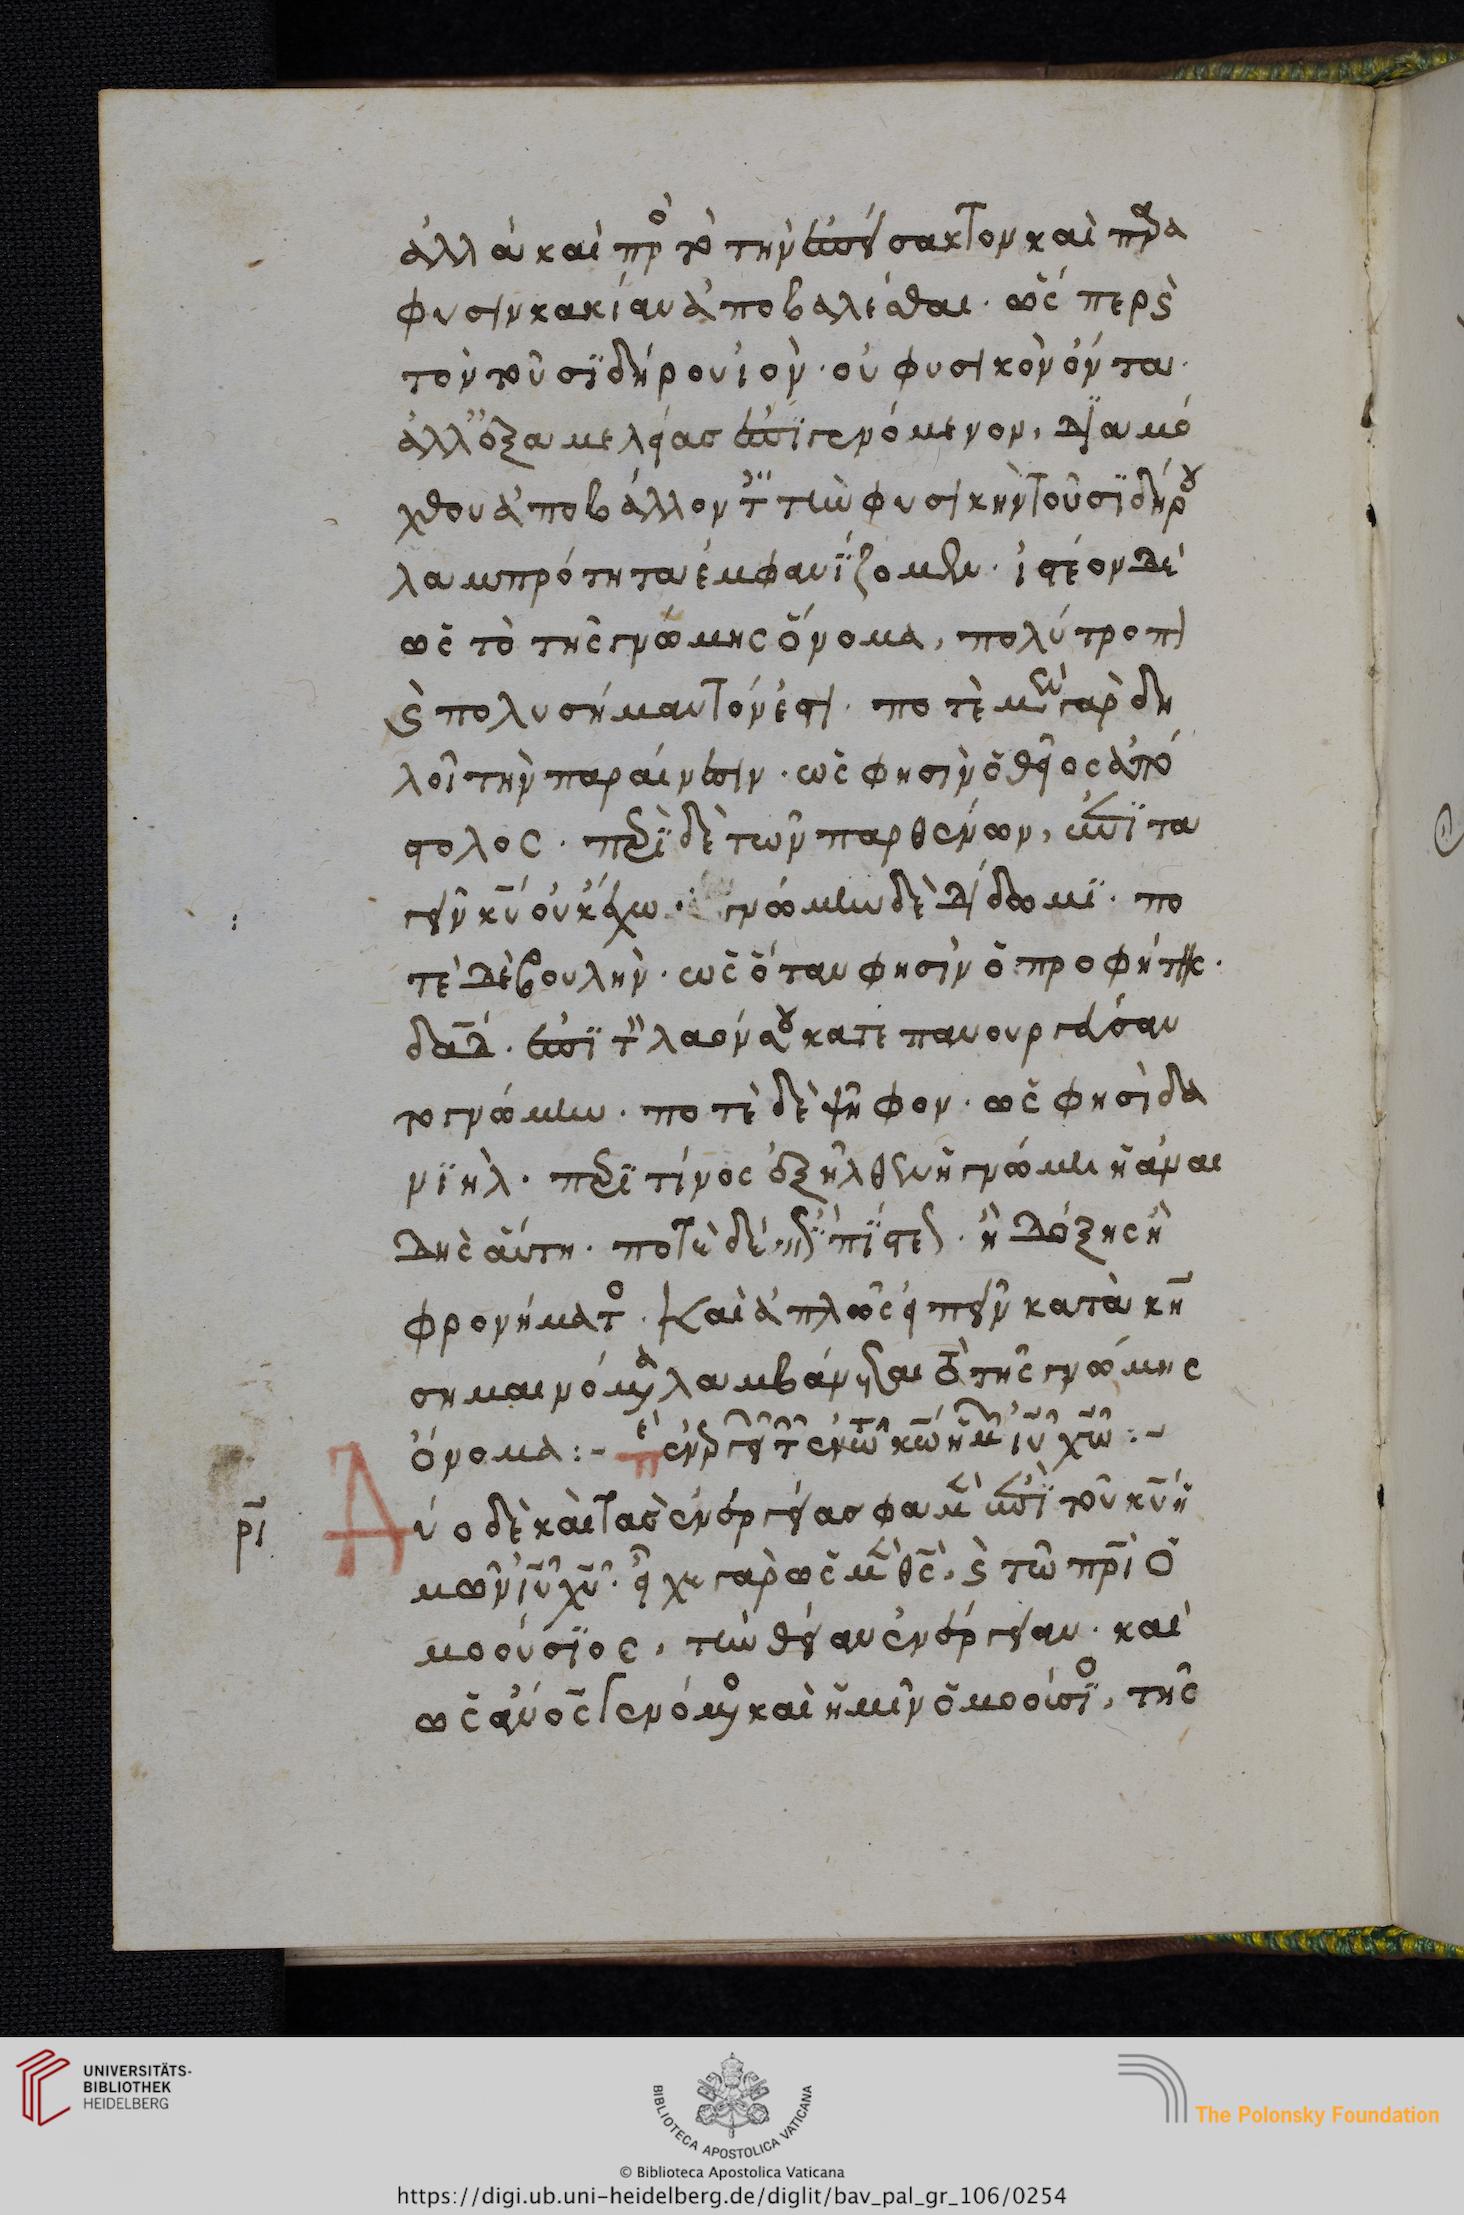 ἀλλὰ καὶ πρὸς τὸ τὴν ἐπείσακτον καὶ παρὰ
φύσιν κακίαν ἀποβαλέσθαι· ὥσπερ καὶ
τὸν τοῦ σϊδήρου ἰὸν· οὐ φυσικὸν ὄντα·
ἀλλ' ἐξ ἀμελείας ἐπϊγενόμενον, διὰ μό
χθου ἀποβάλλοντες τὴν φυσικὴν τοῦ σϊδήρου
λαμπρότητα ἐμφανΐζομεν· ἰστέον δὲ
ὡς τὸ τῆς γνώμης ὄνομα, πολύτροπον
καὶ πολυσήμαντόν ἐστι· ποτὲ μὲν γὰρ δη
λοῖ τὴν παραίνεσιν· ὡς φησὶν ὁ θεῖος ἀπό
στολος· περὶ δὲ τῶν παρθένων, ἐπϊτα
γὴν κυ οὐκ ἔχω· γνώμην δὲ δίδωμϊ· πο
τὲ δὲ βουλὴν· ὡς ὅταν φησὶν ὁ προφήτης
δαδ· ἐπϊ τὸν λαόν σου κατεπανουργεύσαν
το γνώμην· ποτὲ δὲ ψῆφον· ὡς φησὶ δα
νϊὴλ· περὶ τίνος ἐξῆλθεν ἡ γνώμη ἡ ἀναι
δὴς αὕτη· ποτὲ δὲ ἐπὶ πίστεως· ἢ δόξης ἢ
φρονήματος· Καὶ ἁπλῶς εἰπεῖν κατὰ κη
σημαινόμενα λαμβάνεται τὸ τῆς γνώμης
ὄνομα:- περὶ ἐνεργειῶν τῶν ἐν τῶ κω ἡμῶν ιυ χω:-
Δύο δὲ καὶ τὰς ἐνεργείας φαμὲν ἐπϊ τοῦ κυ ἡ
μῶν ιυ χυ· εἶχε γὰρ ὡς μὲν θς, καὶ τῶ πρι ὁ
μοούσϊος, τὴν θείαν ἐνέργειαν· καὶ
ὡς ανος γενόμενος καὶ ἡμῖν ὁμοούσϊος, τῆς
ρι
UNIVERSITÄTS-
BIBLIOTHEK
HEIDELBERG
BIBLIOTECA APOSTOLICA VATICANA
© Biblioteca Apostolica Vaticana
The Polonsky Foundation
https://digi.ub.uni-heidelberg.de/diglit/bav_pal_gr_106/0254